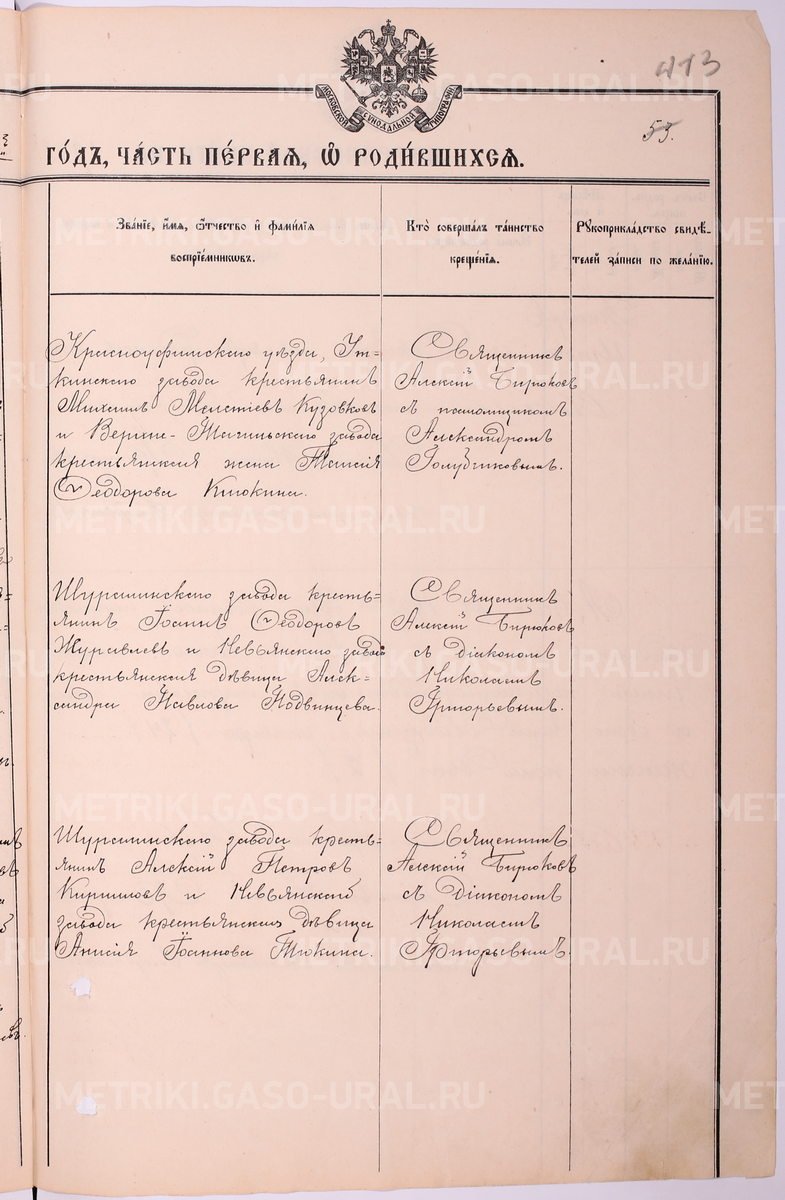 413
53.
МОСКОВСКОЙ СѴНОДАЛЬНОЙ ТИПОГРАФІИ
ГО́ДЪ, ЧА́СТЬ ПЕ́РВАѦ, Ѡ҆ РОДИ́ВШИХСѦ.
Зва́нїе, и҆́мѧ, ѻ҆́тчество и҆ фами́лїѧ
воспрїе́мникѡвъ.
Кто̀ соверша́лъ та́инство
креще́нїѧ.
Рꙋкоприкла́дство свидѣ́-
телей за́писи по жела́нїю.
Красноуфимскаго уѣзда, Ут-
кинскаго завода крестьянинъ
Михаилъ Мелетіевъ Кузовковъ
и Верхне-Тагильскаго завода
крестьянская жена Таисія
Ѳеодорова Клюкина.
Священникъ
Алексій Бирюковъ
съ псаломщикомъ
Александромъ
Голубчиковымъ.
Шуралинскаго завода кресть=
янинъ Іоаннъ Ѳеодоровъ
Журавлевъ и Невьянскаго завода
крестьянская дѣвица Алек=
сандра Павлова Подвинцева.
Священникъ
Алексій Бирюковъ
съ діакономъ
Николаемъ
Григорьевымъ.
Шуралинскаго завода кресть=
янинъ Алексій Петровъ
Кирилловъ и Невьянскаго
завода крестьянская дѣвица
Анисія Іоаннова Тюкина.
Священникъ
Алексій Бирюковъ
съ діакономъ
Николаемъ
Григорьевымъ.
METRIKI.GASO-URAL.RU